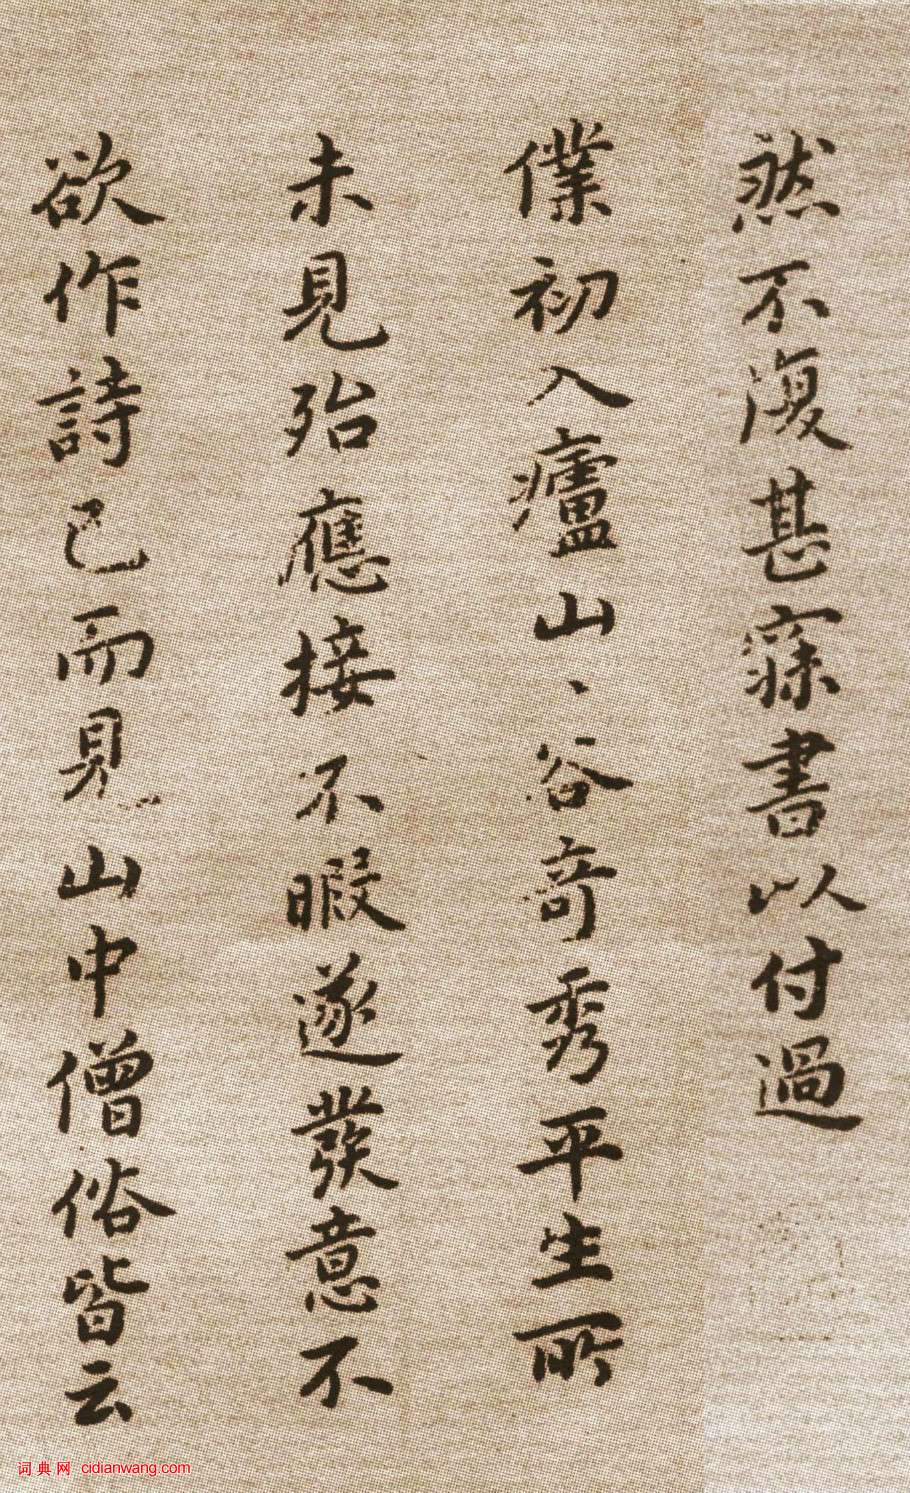 然不復甚寐書以付過
僕初入廬山、谷奇秀平生所
未見殆應接不暇遂發意不
欲作詩已而見山中僧俗皆云
词典网 cidianwang.com